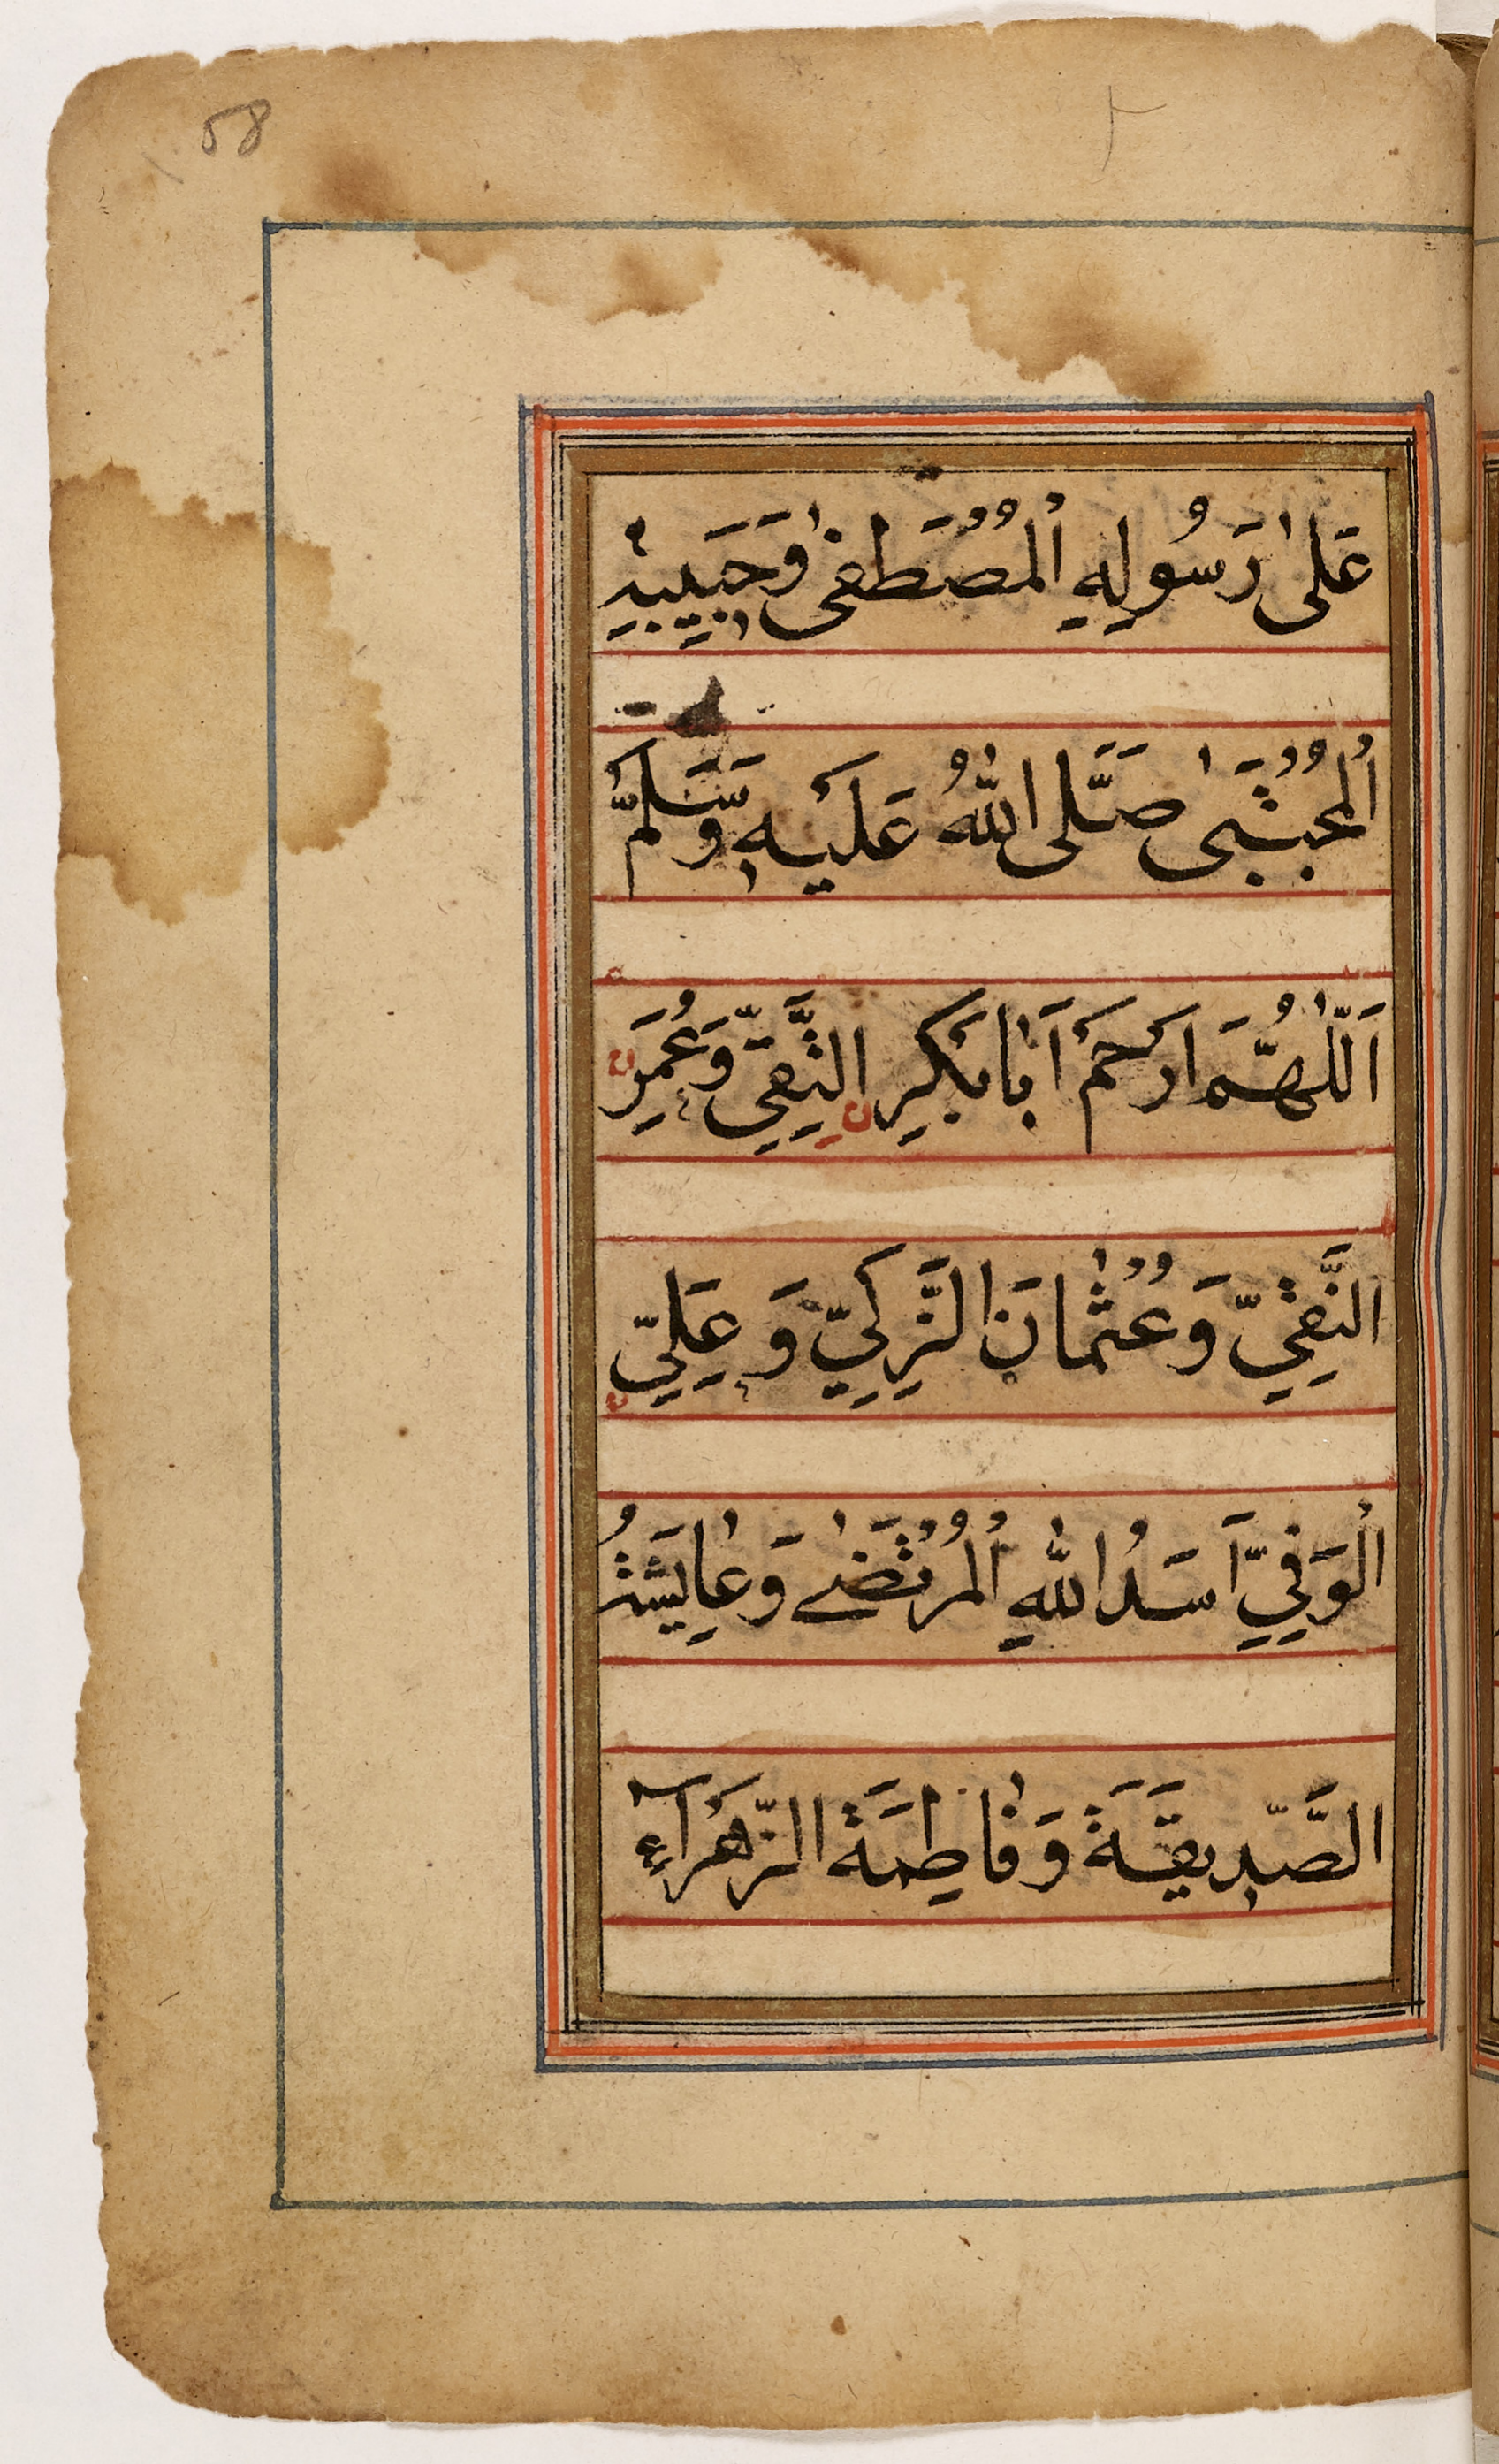 58
عَلٰى رَسُولِهِ الْمُصْطَفٰى وَحَبِيبِهِ
الْمُجْتَبٰى صَلَّى اللّٰهُ عَلَيْهِ وَسَلَّمْ
اَللّٰهُمَّ ارْحَمْ اَبَابَكْرِ التَّقِيِّ وَعُمَرِ
النَّقِيِّ وَعُثْمَانَ الزَّكِيِّ وَ عَلِيِّ
الْوَفِيِّ اَسَدُ اللّٰهِ الْمُرْتَضٰى وَعَايِشَةُ
الصِّدِيقَةَ وَفَاطِمَةَ الزَّهْرَآءِ